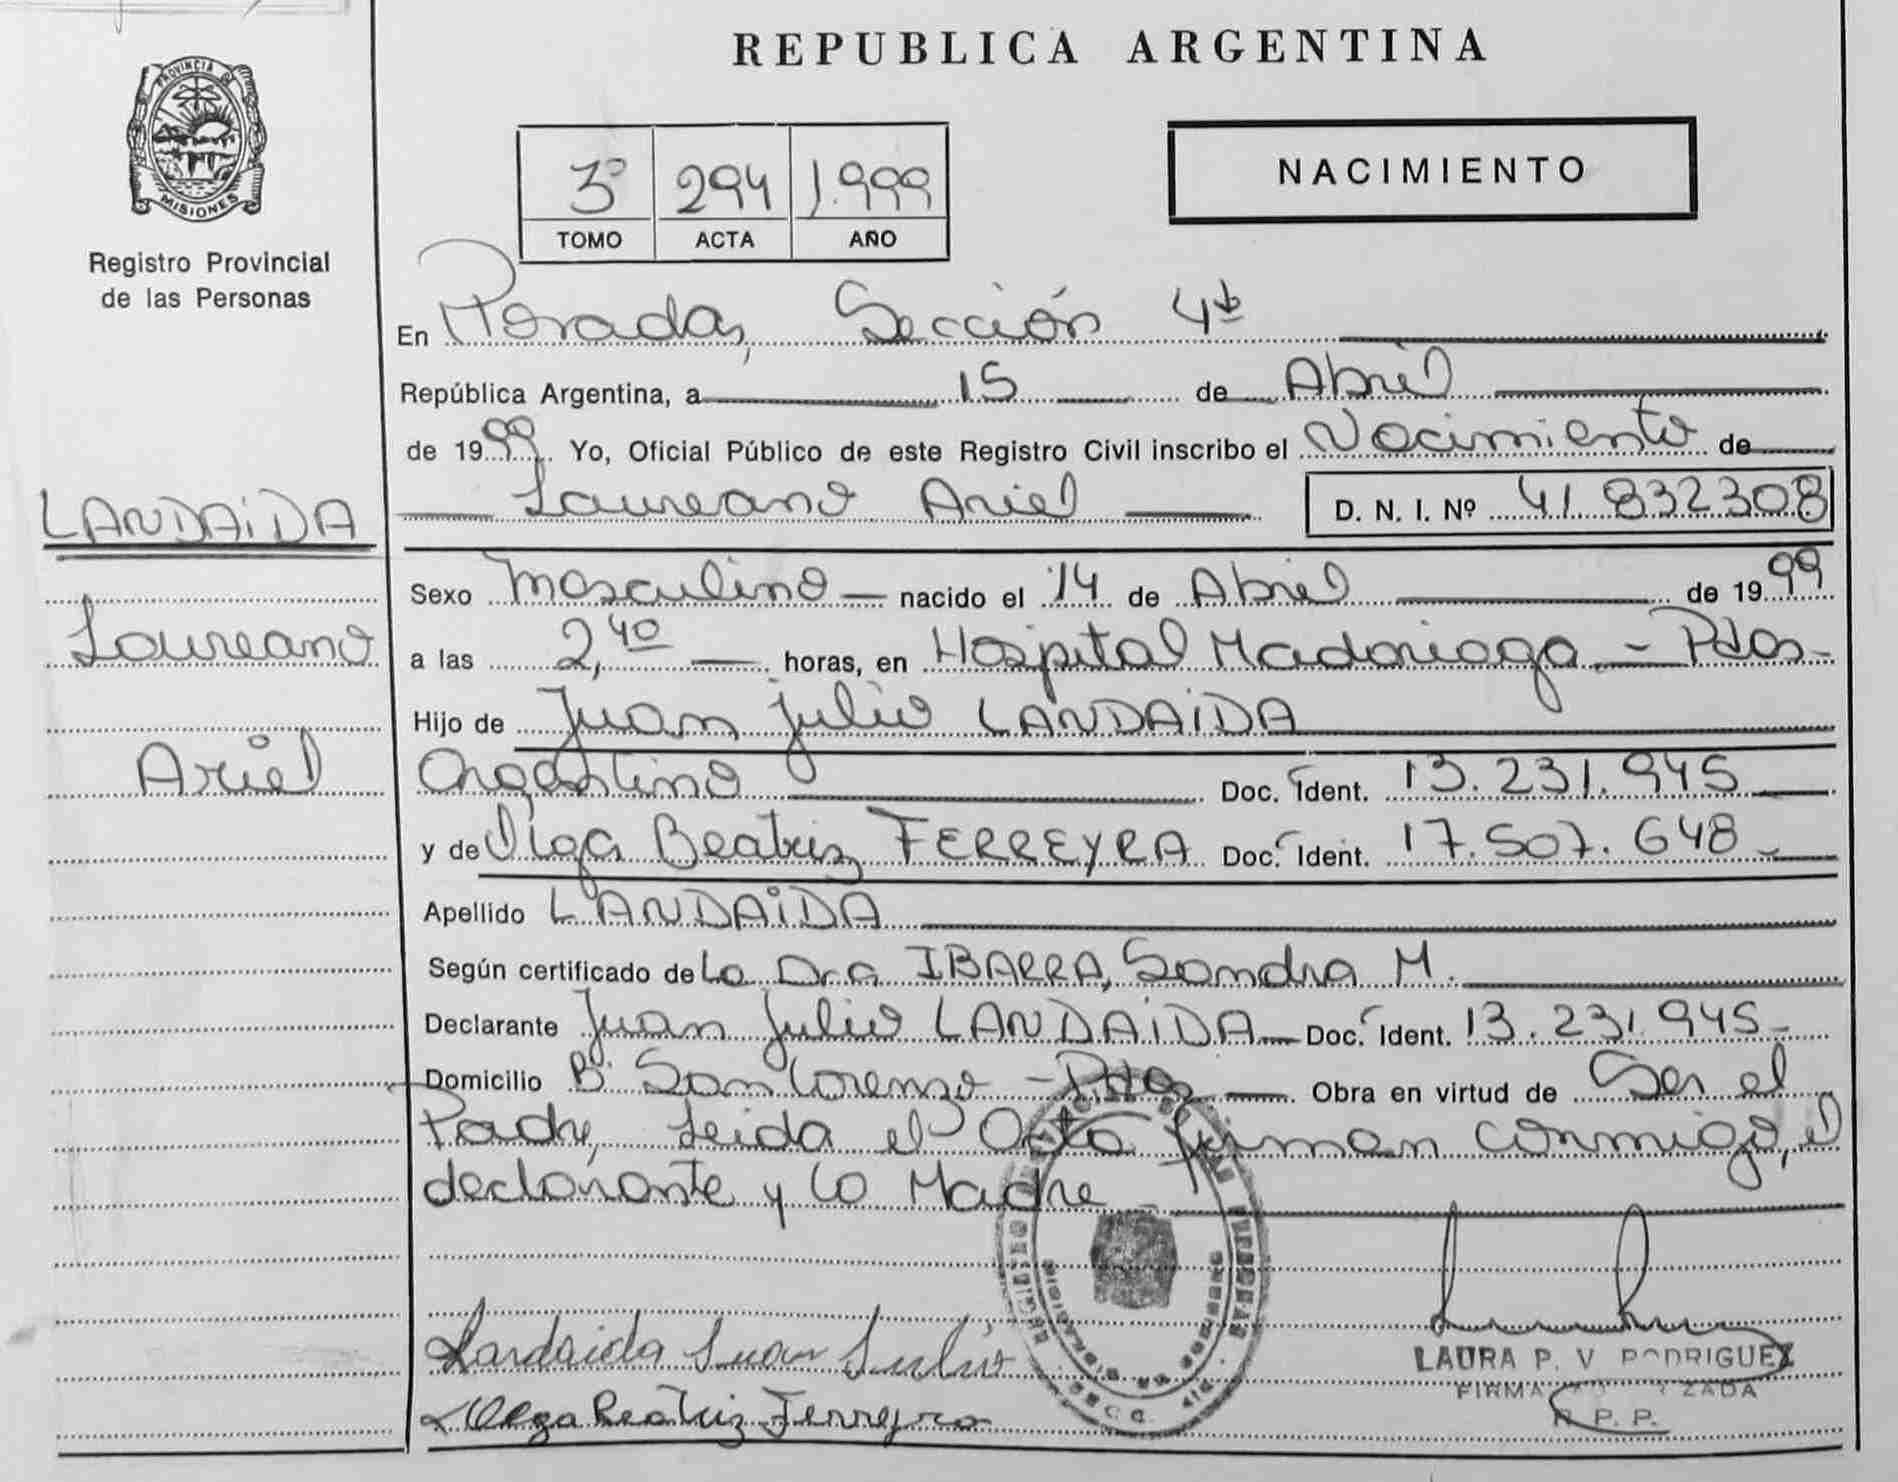 REPUBLICA ARGENTINA
PROVINCIA DE
MISIONES
Registro Provincial
de las Personas
3º 294 1.999
TOMO ACTA AÑO
NACIMIENTO
En Posadas, Sección 4ta
República Argentina, a 15 de Abril
de 1999 Yo, Oficial Público de este Registro Civil inscribo el Nacimiento de
Laureano Ariel D. N. I. Nº 41.832308
LANDAiDA
Laureano
Ariel
Sexo Masculino nacido el 14 de Abril de 1999
a las 2,40 horas, en Hospital Madariaga - Pdas-
Hijo de Juan Julio LANDAiDA
Argentino Doc. Ident. 13.231.945
y de Olga Beatriz FERREYRA Doc. Ident. 17.507.648-
Apellido LANDAiDA
Según certificado de La Dra IBARRA, Sandra M.
Declarante Juan Julio LANDAiDA Doc. Ident. 13.231.945-
Domicilio Bº San Lorenzo - Pdas Obra en virtud de Ser el
Padre, Leida el Acta firman conmigo, el
declarante y la Madre
Landaida Juan Julio
Olga Beatriz Ferreyra
LAURA P. V. RODRIGUEZ
FIRMA
R. P. P.